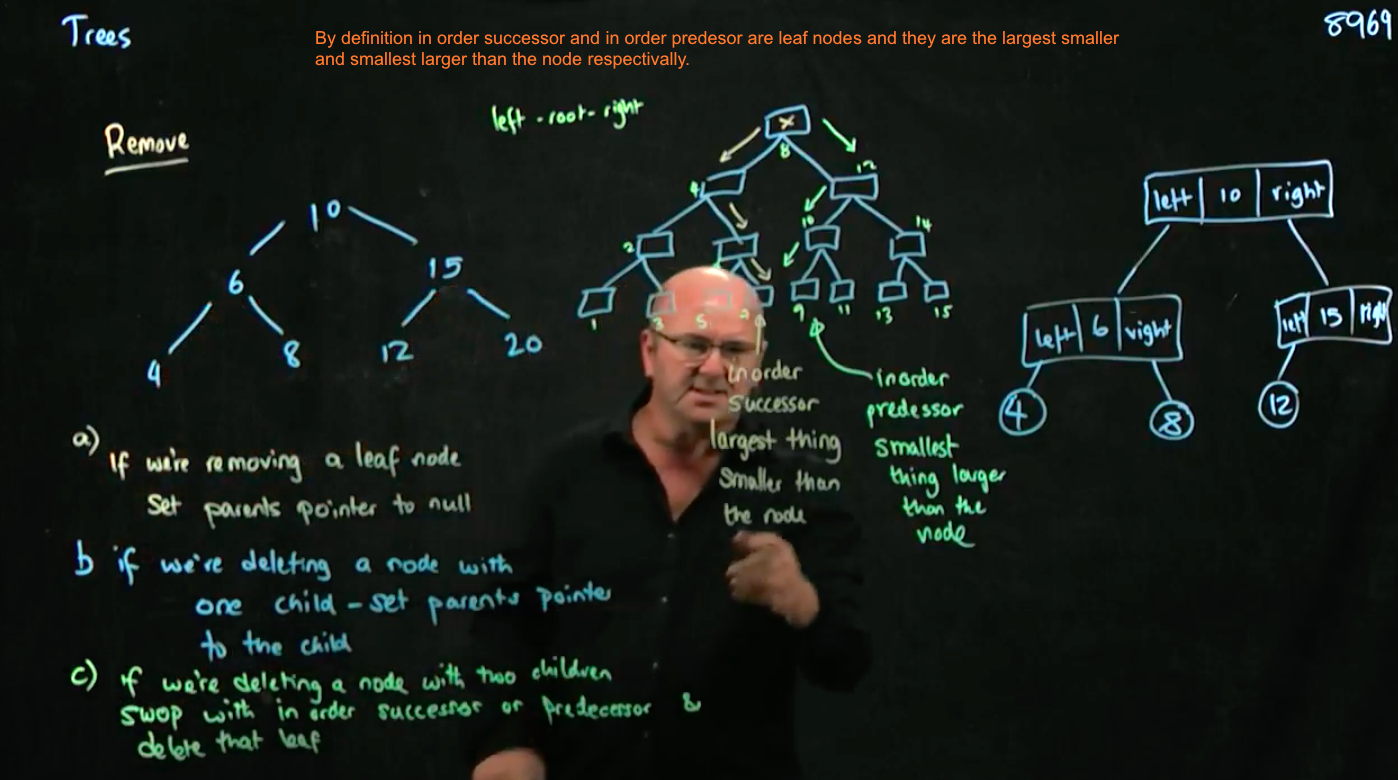 Trees
By definition in order successor and in order predesor are leaf nodes and they are the largest smaller
and smallest larger than the node respectivally.
8969
Remove
left - root - right
10
6
15
4
8
12
20
x
8
4
12
2
10
14
1
3
5
7
9
11
13
15
left 10 right
left 6 right
left 15 right
4
8
12
inorder
successor
largest thing
smaller than
the node
inorder
predessor
smallest
thing larger
than the
node
a)
If we're removing a leaf node
set parents pointer to null
b if we're deleting a node with
one child - set parents pointer
to the child
c) if we're deleting a node with two children
swop with in order successor or predecessor &
delete that leaf